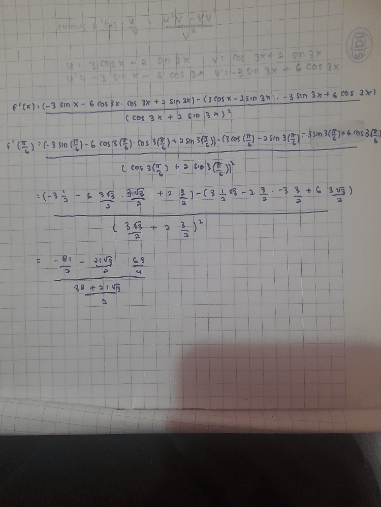 u = 3 cos x - 2 sin 3x v = cos 3x + 2 sin 3x
u' = -3 sin x - 6 cos 3x v' = -3 sin 3x + 6 cos 3x
f'(x) = (-3 sin x - 6 cos 3x · cos 3x + 2 sin 3x) - (3 cos x - 2 sin 3x · -3 sin 3x + 6 cos 3x)
(cos 3x + 2 sin 3x)²
f'(π/6) = (-3 sin(π/6) - 6 cos 3(π/6) · cos 3(π/6) + 2 sin 3(π/6)) - (3 cos(π/6) - 2 sin 3(π/6) · -3 sin 3(π/6) + 6 cos 3(π/6)
(cos 3(π/6) + 2 sin 3(π/6))²
= (-3 1/2 - 6 3√3/2 · 3√3/2 + 2 3/2) - (3 1/2 √3 - 2 3/2 · -3 3/2 + 6 3√3/2)
(3√3/2 + 2 3/2)²
= -81/2 - 21√3/2 63/4
+ 21√3/2